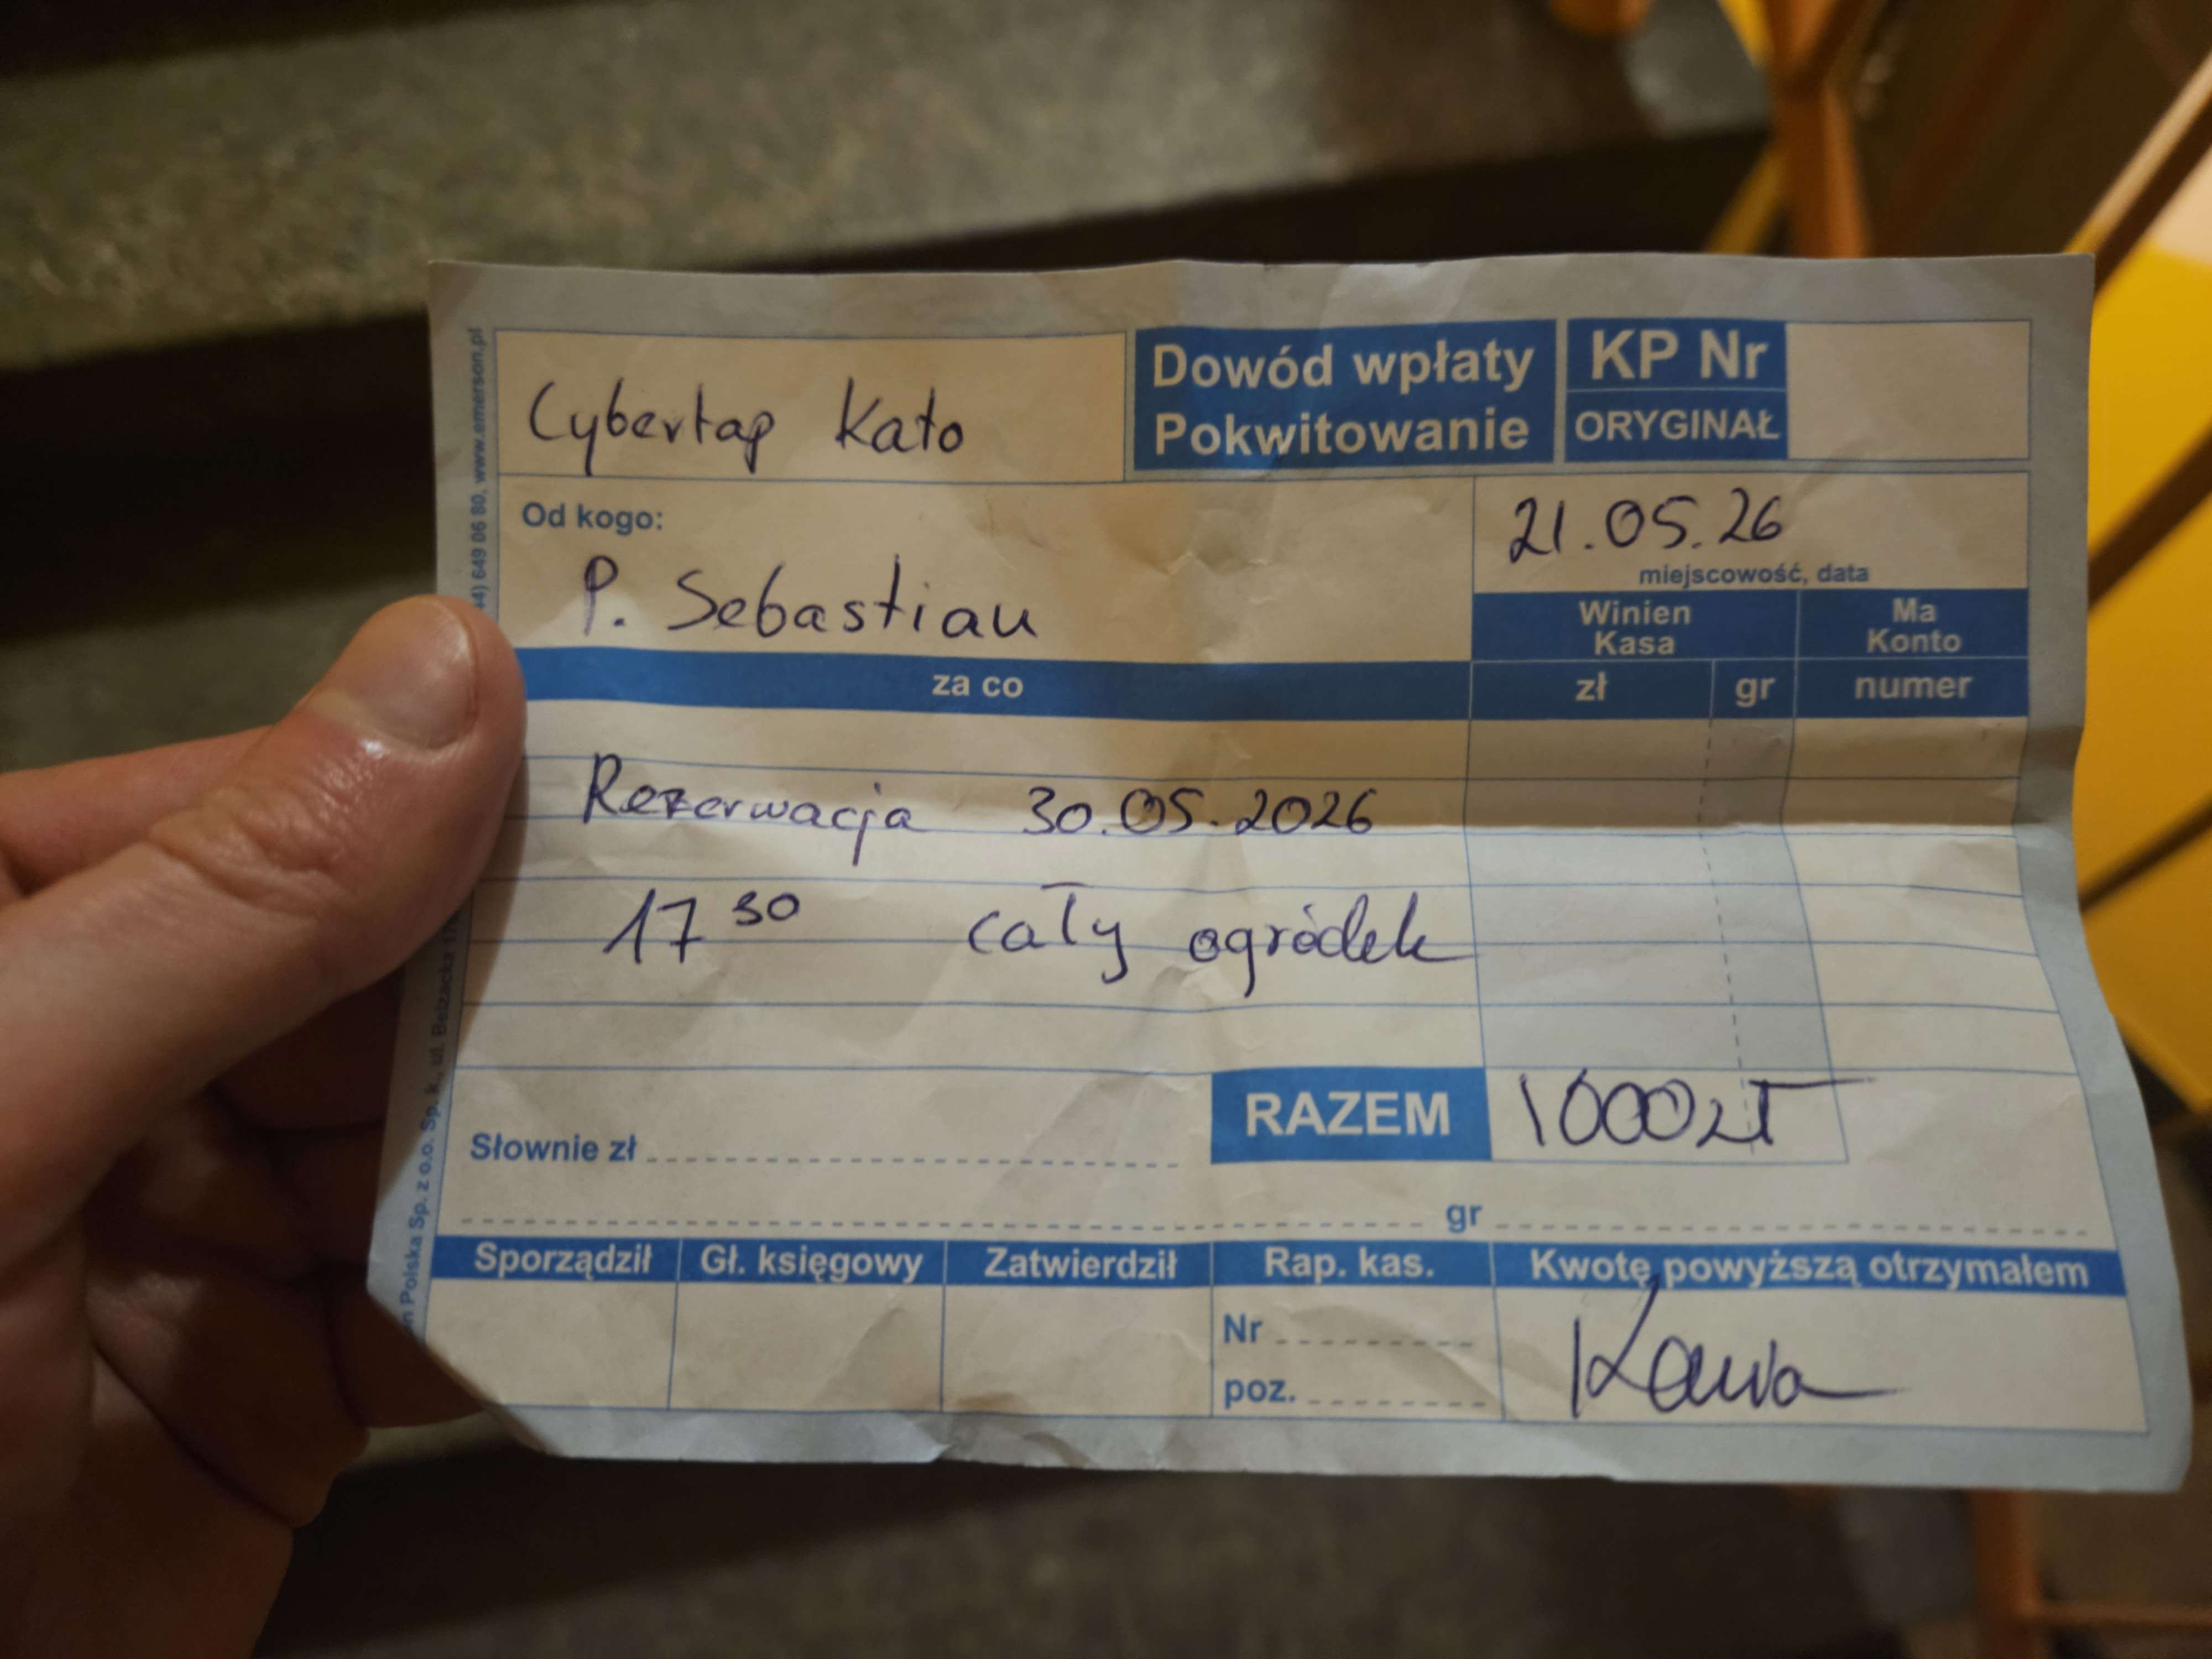 Cybertap Kato
Dowód wpłaty
Pokwitowanie
KP Nr
ORYGINAŁ
Od kogo:
P. Sebastian
21.05.26
miejscowość, data
Winien
Kasa
Ma
Konto
za co
zł
gr
numer
Rezerwacja 30.05.2026
17 30 cały ogródek
RAZEM
1000zł
Słownie zł
gr
Sporządził
Gł. księgowy
Zatwierdził
Rap. kas.
Kwotę powyższą otrzymałem
Nr
poz.
Polska Sp. z o.o. Sp. k., ul. Bełżacka
649 06 80, www.emerson.pl